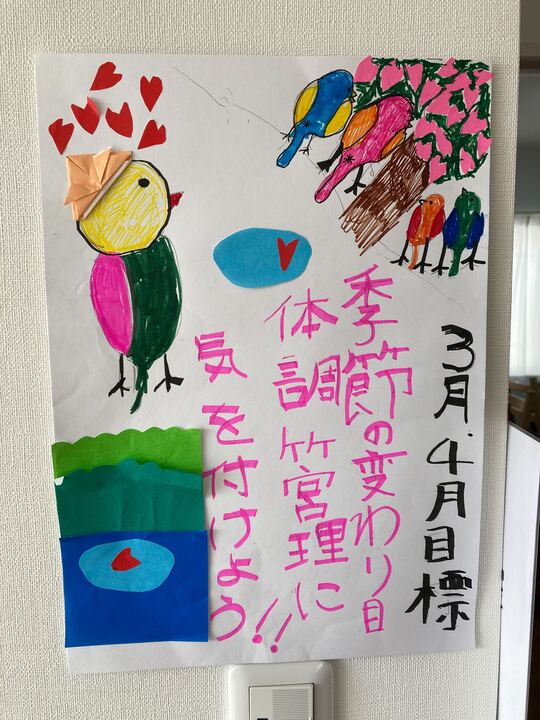 3月.4月目標
季節の変わり目
体調管理に
気を付けよう!!